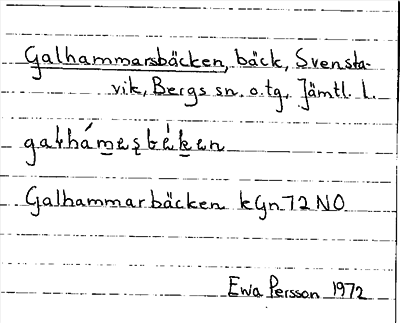 Galhammarsbäcken, bäck, Svensta-
vik, Bergs sn. o. tg. Jämtl. l.
Galhammarbäcken kGn 72 NO
Ewa Persson 1972